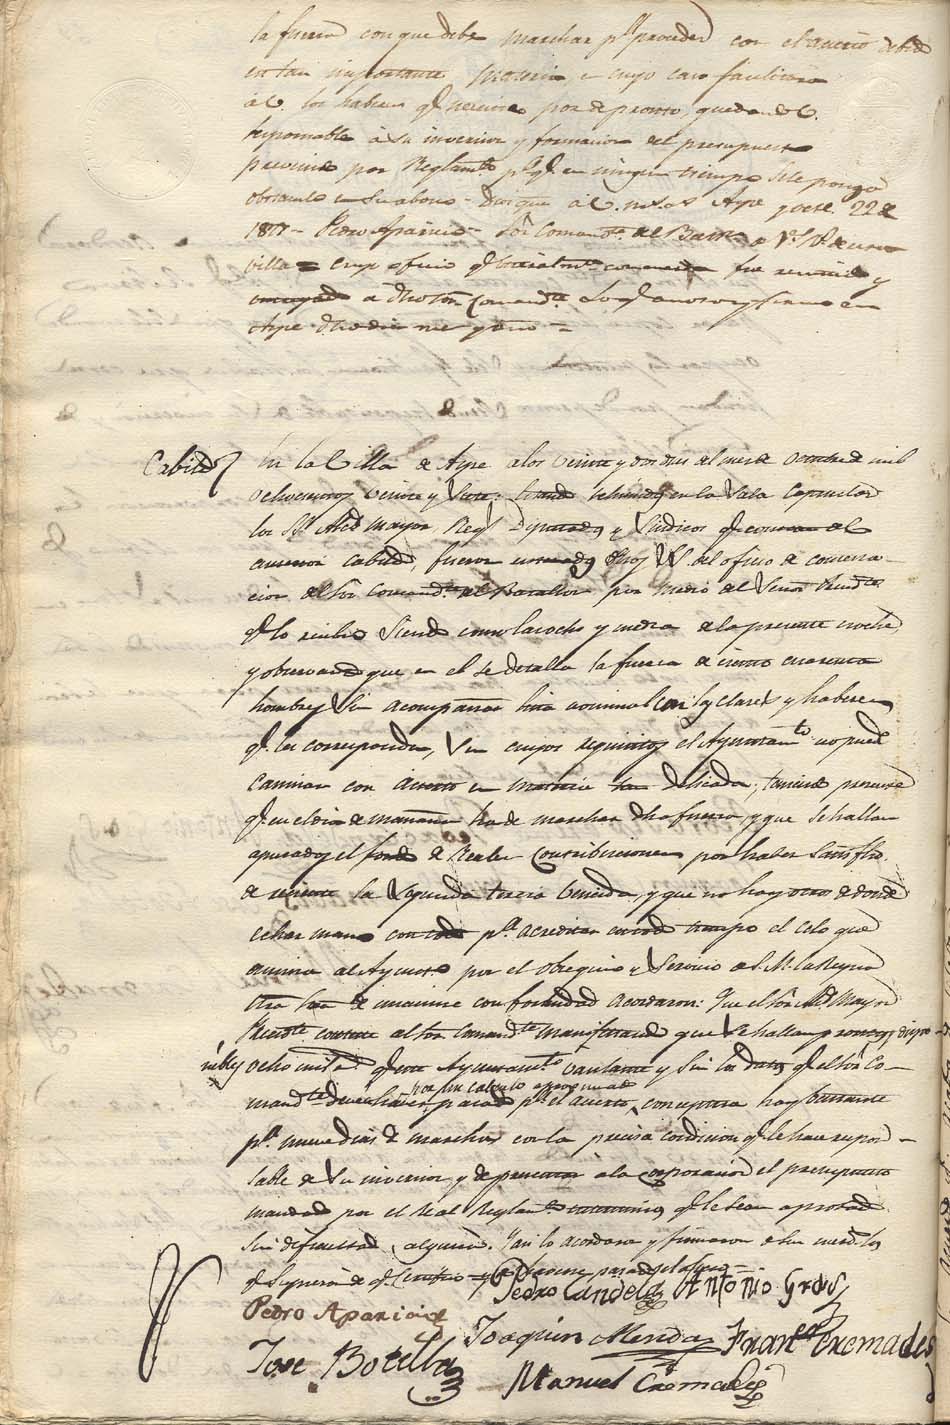 la fuerza con que debe marchar pª proceder con el acierto debido
en tan importante materia, en cuyo caso facilitara
á V. los haberes q.e necesite por de pronto, quedando V.
responsable á su inversion y formacion del presupuesto
prevenido por Reglam.to p.a q.e en ningun tiempo se le ponga
obstaculo en su abono = Dios gue á V. m.s a.s Aspe y octe. 22 de
1827 = Pedro Aparicio = Sôr Comand.te del Batt.n de V.s R.s de esta
villa = Cuyo oficio q.e literalm.te concuerda fue remitido y
entregado a dho Sôr Comand.te de q.e certifico y firmo en
Aspe dho dia mes y año =
Cabildo En la Villa de Aspe a los veinte y dos dias del mes de Octubre de mil
ochocientos veinte y siete: Estando reunidos en la Sala Capitular
los SS. Alcd Mayor Reg.s Diputados y Sindicos q.e constan en el
anterior Cabildo, fueron enterados dhos SS. del oficio de contesta-
cion del Sôr Comand.te del Batallon por medio del Señor Presid.te
q.e lo recibio siendo como las ocho y media de la presente noche
y observando que en el se detalla la fuerza de ciento cuarenta
hombres sin acompañar lista nominal con las clases y haberes
q.e les corresponden, sin cuyos requisitos el Ayuntam.to no puede
caminar con acierto en materia tan delicada; teniendo presente
q.e en el dia de mañana ha de marchar dha fuerza, y que se hallan
apurados el fondo de Reales Contribuciones por haber satisfho
de reciente la segunda tercia vencida, y que no hay otro de donde
echar mano con todo p.a acreditar en todo tiempo el celo que
anima al Ayunto por el obsequio y servicio de S. M. la Reyna
Ntra Sra de unanime conformidad acordaron: Que el Sôr Alcd Mayor
Presid.te conteste al Sôr Comand.te manifestando que se hallan prontos y dispo-
nibles ocho mil rs q.e este Ayuntam.to vacilante y sin los datos q.e el Sôr Co-
por un calculo aproximado
mand.te debe haber pasado p.a el acierto, conceptua hay bastante
p.a nueve dias de marcha con la precisa condicion q.e le hace respon-
sable de su inversion, y de presentar á la corporacion el presupuesto
mandado por el Real Reglam.to q.e le sea aprobado
sin dificultad alguna. Asi lo acordaron y firmaron dhos
q.e supieron de q.e Certifico
Pedro Candela Antonio Gras
Pedro Aparicio
Joaquin Mendaz Fran.co Cremades
Jose Botella
Manuel Cremades